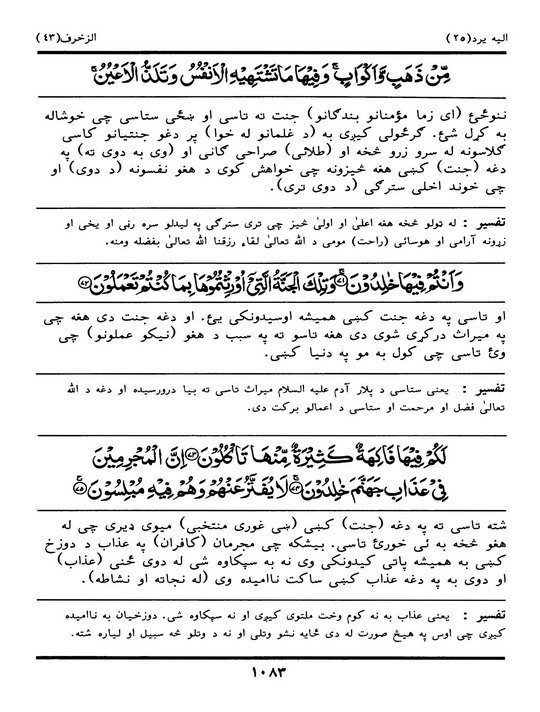 الزخرف(۴۳)
الیه یرد(۲۵)
مِّنْ ذَهَبٍ وَّاَكْوَابٍ ۚ وَفِيْهَا مَا تَشْتَهِيْهِ الْاَنْفُسُ وَتَلَذُّ الْاَعْيُنُ ۚ
ننوځئ (ای زما مؤمنانو بندګانو) جنت ته تاسی او ښځی ستاسی چی خوشاله
به کړل شئ. ګرځولی کیږی به (د غلمانو له خوا) پر دغو جنتیانو کاسی
ګلاسونه له سرو زرو څخه او (طلائی) صراحی ګانی او (وی به دوی ته) په
دغه (جنت) کښی هغه څیزونه چی خواهش کوی د هغو نفسونه (د دوی) او
چی خوند اخلی سترګی (د دوی تری).
تفسیر : له ټولو څخه هغه اعلیٰ او اولیٰ څیز چی تری سترګی په لیدلو سره رڼی او یخی او
زړونه آرامی او هوسائی (راحت) مومی د الله تعالیٰ لقاء رزقنا الله تعالیٰ بفضله ومنه.
وَاَنْتُمْ فِيْهَا خٰلِدُوْنَ ۚ ﴿۷۱﴾ وَتِلْكَ الْجَنَّةُ الَّتِيْٓ اُوْرِثْتُمُوْهَا بِمَا كُنْتُمْ تَعْمَلُوْنَ ﴿۷۲﴾
او تاسی په دغه جنت کښی همیشه اوسیدونکی یئ. او دغه جنت دی هغه چی
په میراث درکړی شوی دی هغه تاسو ته په سبب د هغو (نیکو عملونو) چی
وئ تاسی چی کول به مو په دنیا کښی.
تفسیر : یعنی ستاسی د پلار آدم علیه السلام میراث تاسی ته بیا دررسیده او دغه د الله
تعالیٰ فضل او مرحمت او ستاسی د اعمالو برکت دی.
لَكُمْ فِيْهَا فَاكِهَةٌ كَثِيْرَةٌ مِّنْهَا تَاْكُلُوْنَ ﴿۷۳﴾ اِنَّ الْمُجْرِمِيْنَ
فِيْ عَذَابِ جَهَنَّمَ خٰلِدُوْنَ ۚ ﴿۷۴﴾ لَا يُفَتَّرُ عَنْهُمْ وَهُمْ فِيْهِ مُبْلِسُوْنَ ۚ ﴿۷۵﴾
شته تاسی ته په دغه (جنت) کښی (ښی غوری منتخبی) میوی ډیری چی له
هغو څخه به ئی خورئ تاسی. بیشکه چی مجرمان (کافران) په عذاب د دوزخ
کښی به همیشه پاتی کیدونکی وی نه به سپکاوه شی له دوی ځنی (عذاب)
او دوی به په دغه عذاب کښی ساکت ناامیده وی (له نجاته او نشاطه).
تفسیر : یعنی عذاب به نه کوم وخت ملتوی کیږی او نه سپکاوه شی. دوزخیان به ناامیده
کیږی چی اوس په هیڅ صورت له دی ځایه نشو وتلی او نه د وتلو څه سبیل او لیاره شته.
۱۰۸۳